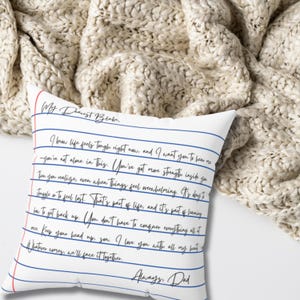 My Dearest
I know life feels tough right now, and I want you to
you're not alone in this. You've got more strength inside
you realize, even when things feel overwhelming. It's okay to
struggle or to feel lost. That's part of life, and it's part of
to get back up. You don't have to conquer everything all at
Keep your head up, son. I love you with all my heart
comes, we'll face it together.
Always, Dad